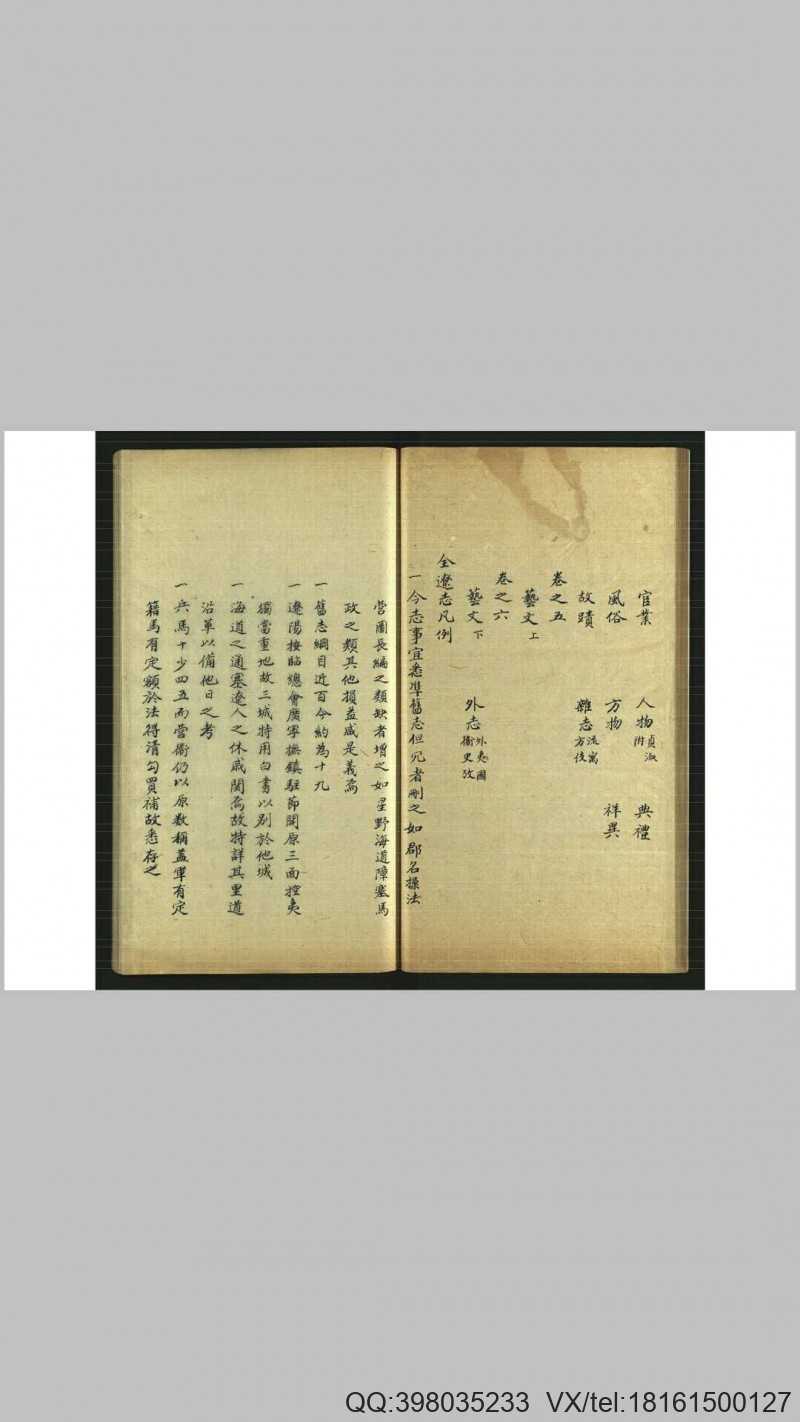 官業 人物 貞淑附 典禮
風俗 方物 祥異
故蹟 雜志 流寓方伎
卷之五
藝文上
卷之六
藝文下 外志 外夷圖衞史攷
全遼志凡例
一今志事宜悉準舊志但冗者刪之如郡名操法
營圖長編之類缺者增之如星野海道障塞馬
政之類其他損益咸是義焉
一舊志綱目近百今約為十九
一遼陽按臨總會廣寧撫鎮駐節開原三面控夷
獨當重地故三城特用白書以別於他城
一海道之通塞遼人之休戚関焉故特詳其里道
沿革以備他日之考
一兵馬十少四五而營衞仍以原数稱蓋軍有定
籍馬有定額於法得清勾買補故悉存之
QQ:398035233 VX/tel:18161500127